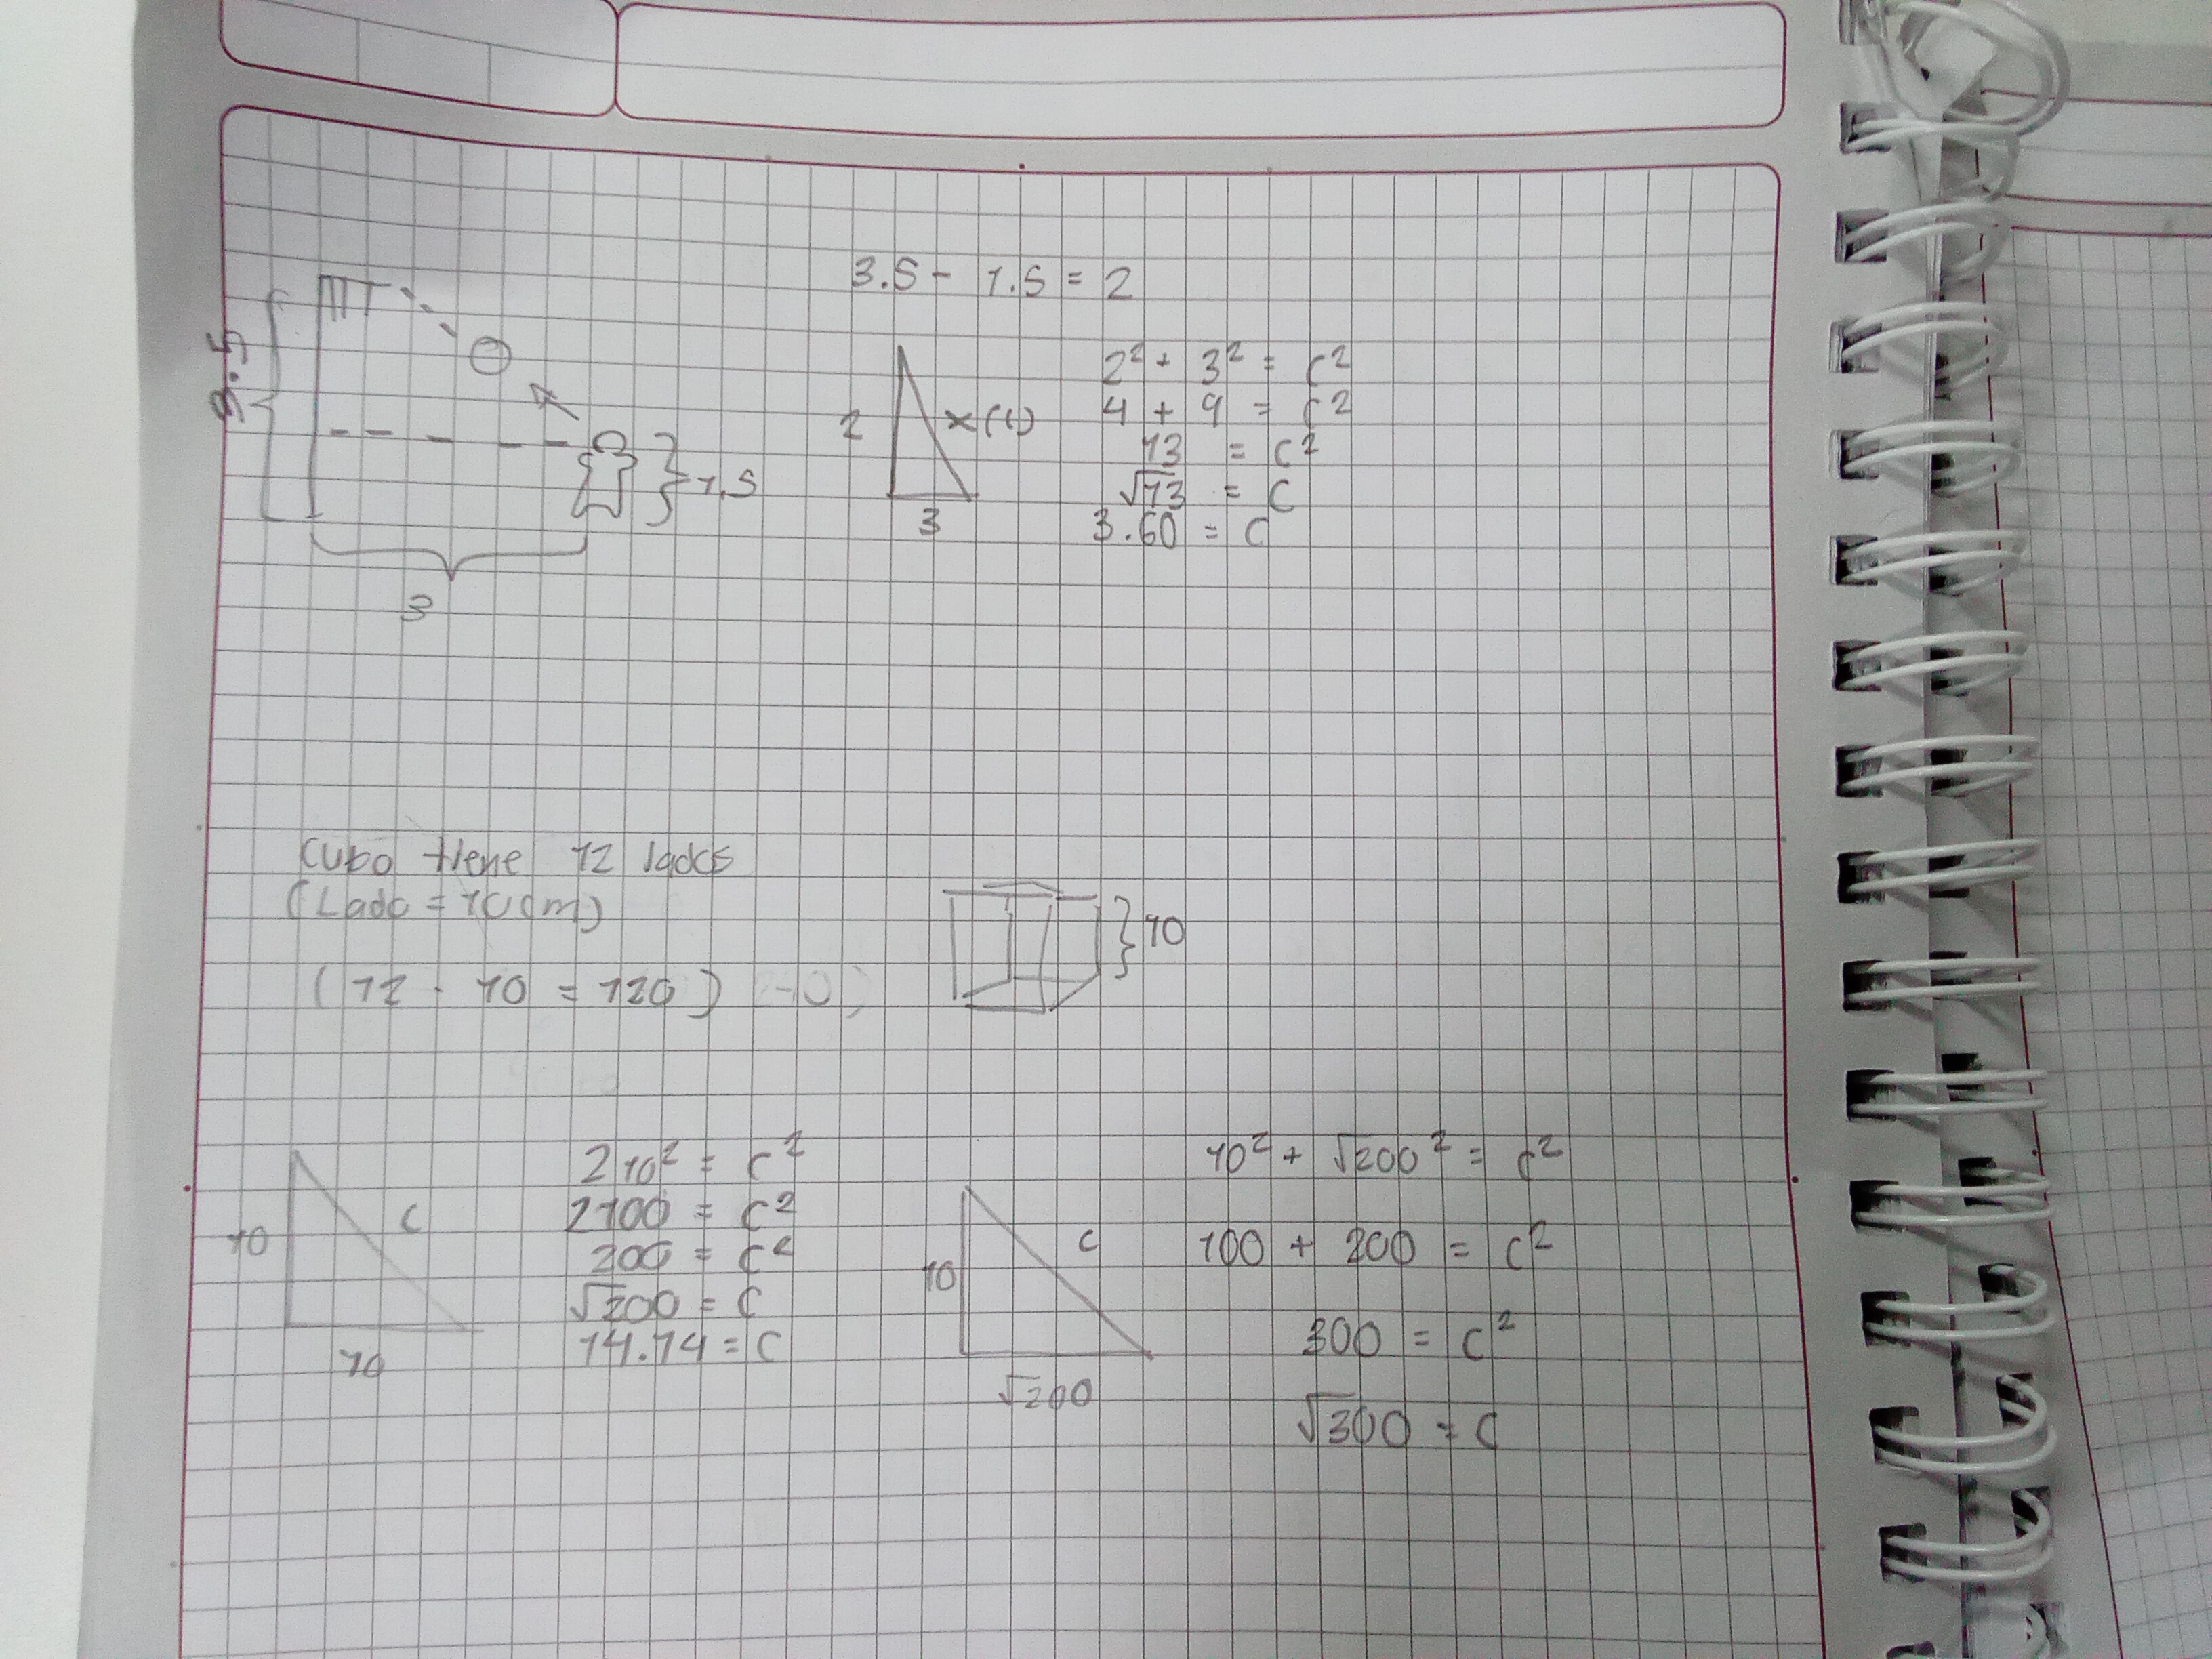 3.5 - 1.5 = 2
3.5
1.5
3
2
x (c)
3
2² + 3² = c²
4 + 9 = c²
13 = c²
√13 = c
3.60 = c
Cubo tiene 12 lados
(Lado = 10cm)
(12 · 10 = 120)
10
10
c
10
2 10² = c²
2 100 = c²
200 = c²
√200 = c
14.14 = c
10
c
√200
10² + √200² = c²
100 + 200 = c²
300 = c²
√300 = c